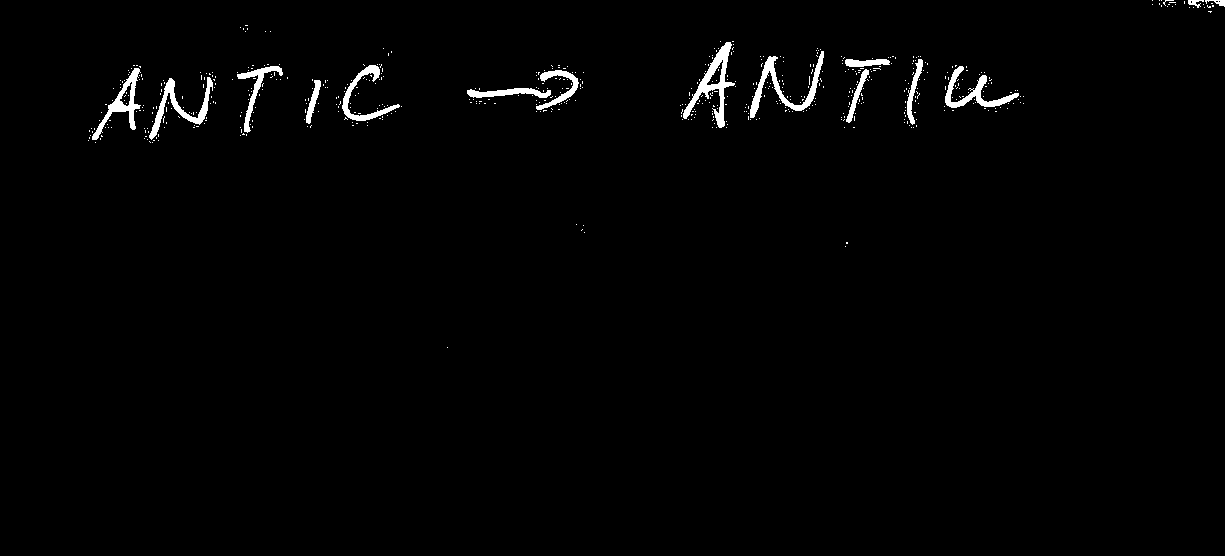 ANTIC → ANTIU